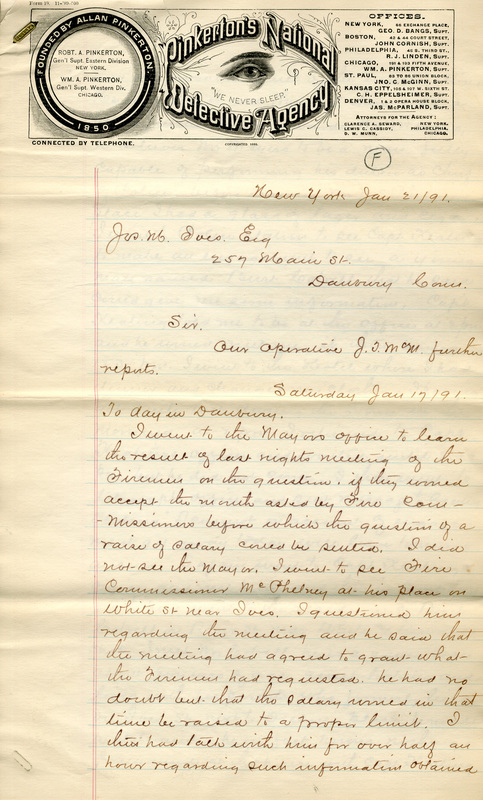 FOUNDED BY ALLAN PINKERTON
1850
ROBT. A. PINKERTON,
Gen'l Supt. Eastern Division
NEW YORK.
WM. A. PINKERTON,
Gen'l Supt. Western Div.
CHICAGO.
CONNECTED BY TELEPHONE.
Pinkerton's National
"WE NEVER SLEEP."
Detective Agency
OFFICES.
NEW YORK, 66 EXCHANGE PLACE,
GEO. D. BANGS, SUPT.
BOSTON, 42 & 44 COURT STREET,
JOHN CORNISH, SUPT.
PHILADELPHIA, 45 S. THIRD ST.,
R. J. LINDEN, SUPT.
CHICAGO, 191 & 193 FIFTH AVENUE,
WM. A. PINKERTON, SUPT.
ST. PAUL, 93 TO 95 UNION BLOCK,
JNO. C. McGINN, SUPT.
KANSAS CITY, 105 & 107 W. SIXTH ST.
C. H. EPPELSHEIMER, SUPT.
DENVER, 1 & 2 OPERA HOUSE BLOCK,
JAS. McPARLAND, SUPT.
ATTORNEYS FOR THE AGENCY:
CLARENCE A. SEWARD, NEW YORK.
LEWIS C. CASSIDY, PHILADELPHIA.
D. W. MUNN, CHICAGO.
F
New York Jan 21/91.
Jos. M. Ives. Esq
257 Main St.
Danbury Conn.
Sir.
Our operative J. J. McM. further
reports.
Saturday Jan 17/91.
To day in Danbury.
I went to the Mayors office to learn
the result of last nights meeting of the
Firemen on the question, if they would
accept the month asked by Fire Com-
-missioners before which the question of a
raise of Salary could be settled. I did
not see the Mayor. I went to see Fire
Commissioner at his place on
White St near Ives. I questioned him
regarding the meeting and he said that
the meeting had agreed to grant what
the Firemen had requested. he had no
doubt but that the Salary would in that
time be raised to a proper limit. I
then had talk with him for over half an
hour regarding such information obtained